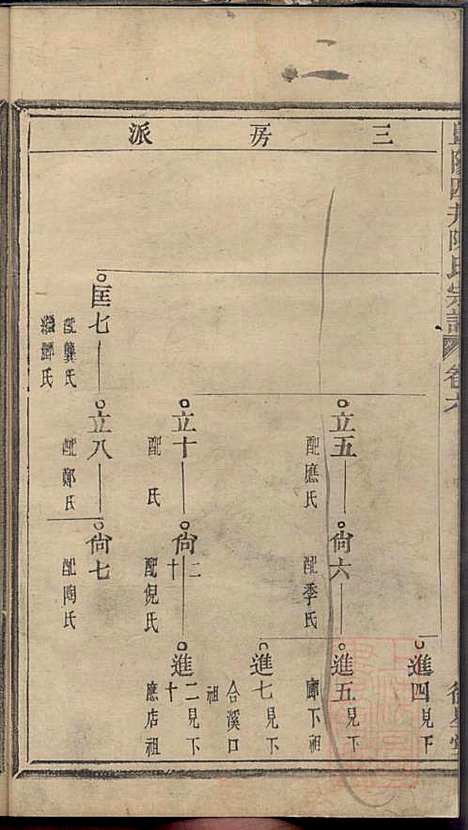 陽四井陳氏宗譜
卷六
三房派
進四見下
立五
配應氏
尙六
配季氏
進五見下
廊下祖
進七見下
合溪口祖
立十
配 氏
尙十二
配倪氏
進十二見下
應店祖
匡七
配龔氏
繼鄒氏
立八
配鄭氏
尙七
配陶氏